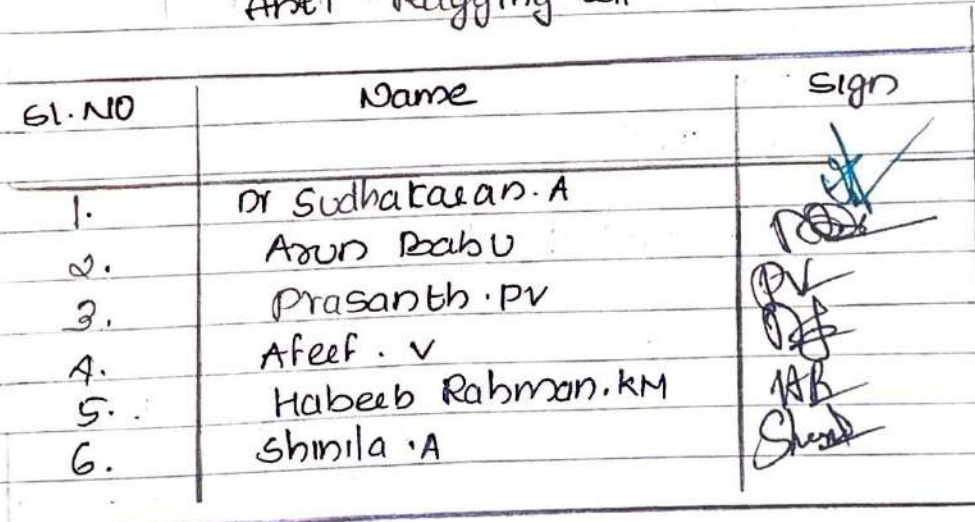 Anti Ragging
Sl.NO Name Sign
1. Dr Sudhakaran.A
2. Arun Babu
3. Prasanth.PV PV
4. Afeef.V
5. Habeeb Rahman.KM HR
6. Shinila.A